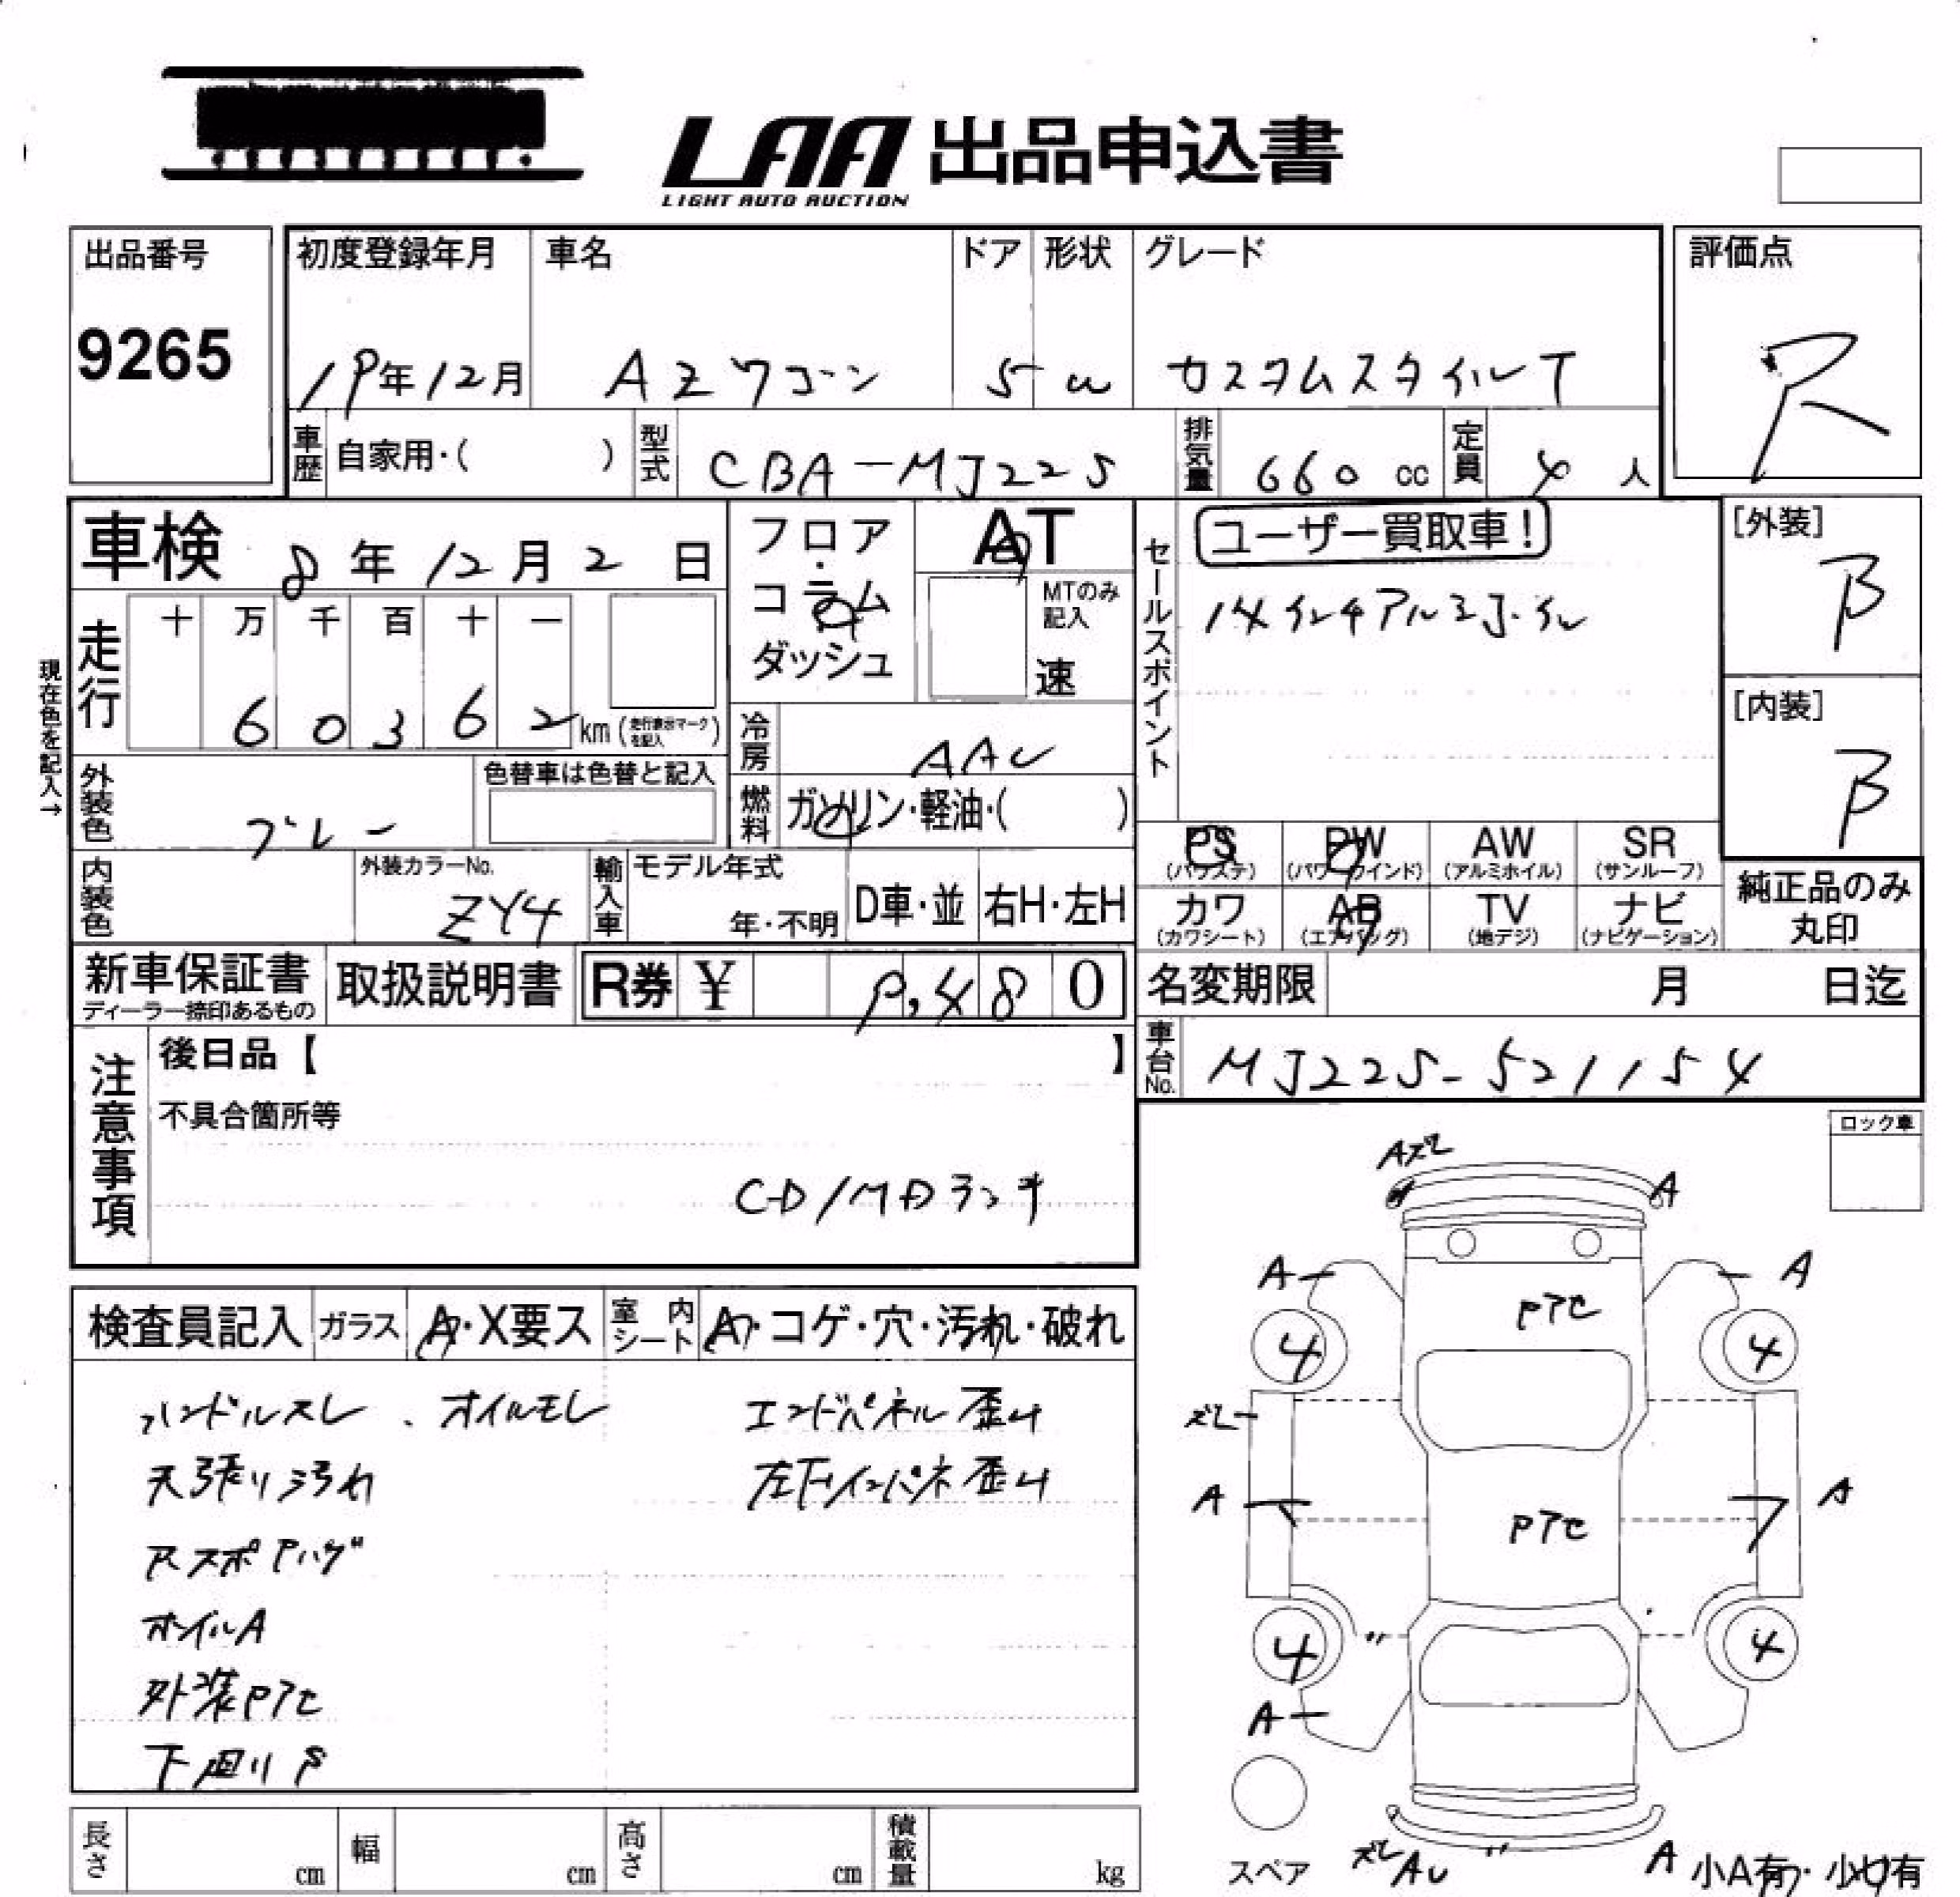 LAA 出品申込書
LIGHT AUTO AUCTION
出品番号
9265
初度登録年月
19年12月
車名
AZワゴン
ドア
5
形状
W
グレード
カスタムスタイルT
評価点
R
車歴
自家用・( )
型式
CBA-MJ22S
排気量
660 cc
定員
4 人
車検 8年12月2日
フロア・コラム
ダッシュ
AT
MTのみ記入
速
セールスポイント
ユーザー買取車!
14インチアルミホイル
[外装]
B
[内装]
B
現在色を記入→
走行
十 万 千 百 十 一
6 0 3 6 2 km (走行表示マークを記入)
冷房
AAC
燃料
ガソリン・軽油・( )
外装色
グレー
色替車は色替と記入
内装色
外装カラーNo.
ZY4
輸入車
モデル年式
年・不明
D車・並
右H・左H
PS (パワステ)
PW (パワーウインド)
AW (アルミホイル)
SR (サンルーフ)
カワ (カワシート)
AB (エアバッグ)
TV (地デジ)
ナビ (ナビゲーション)
純正品のみ丸印
新車保証書
ディーラー捺印あるもの
取扱説明書
R券 ¥ 9,480
名変期限 月 日迄
車台No.
MJ22S-521154
注意事項
後日品【 】
不具合箇所等
CD/MDランチ
ロック車
検査員記入
ガラス
A・X要ス
室内シート
A・コゲ・穴・汚れ・破れ
ハンドルスレ . オイルモレ エンドパネル歪み
天張り汚れ 左下インパネ歪み
Rスポ Pハゲ
ホイルA
外装Pアセ
下廻りS
Aズレ
A
A
A
Pアセ
4
4
ズレ
A
A
Pアセ
4
〃
4
A
スペア
ズレ AU 〃
A
小A有・小U有
長さ cm
幅 cm
高さ cm
積載量 kg